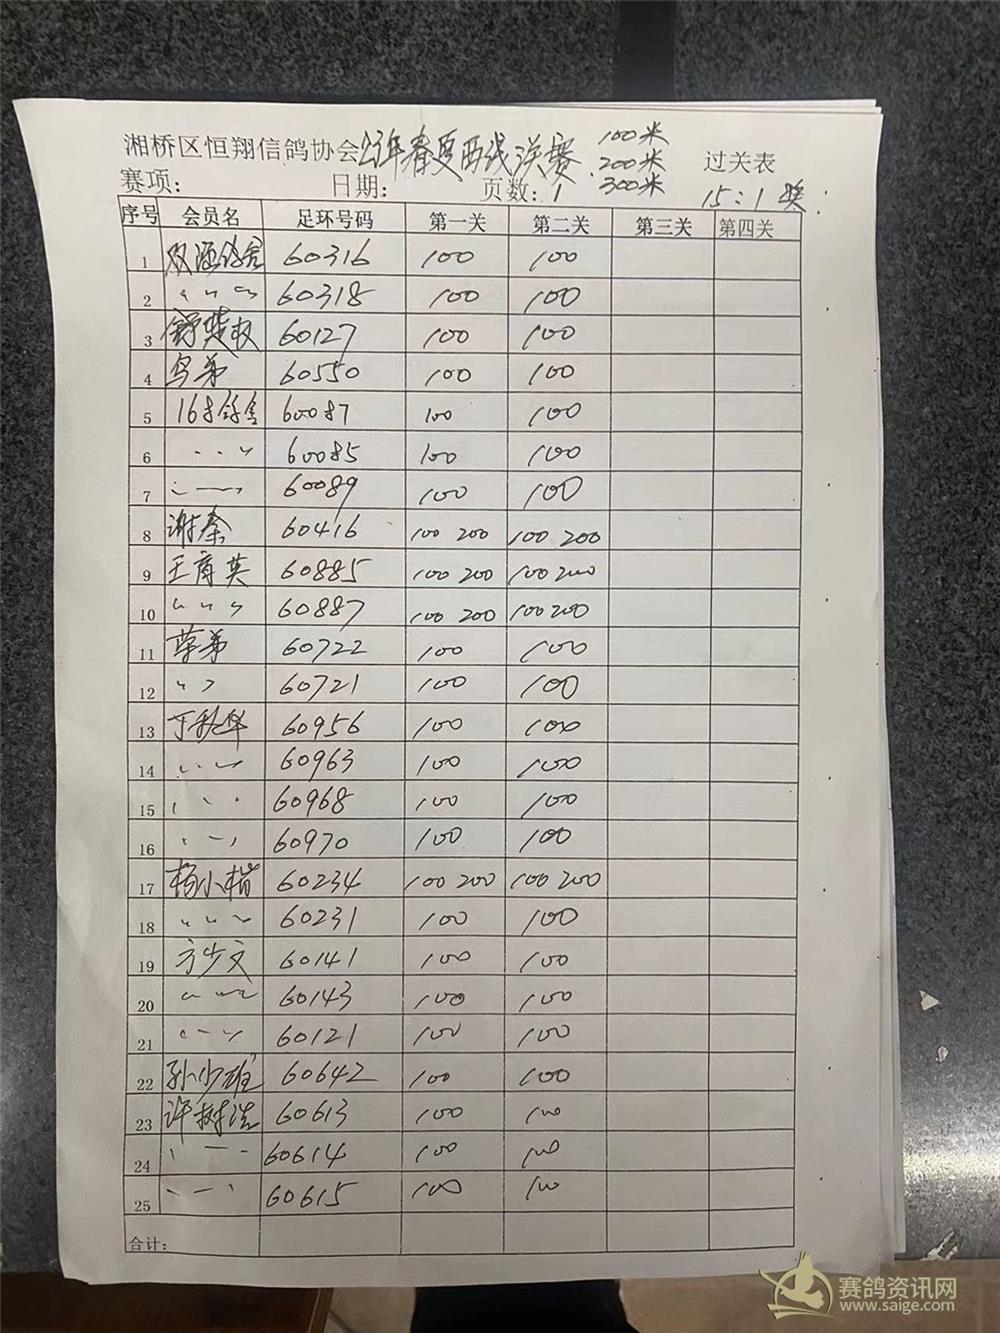 湘桥区恒翔信鸽协会 23年春夏西线决赛 100米 200米 300米 过关表
赛项： 日期： 页数：1 15:1奖
序号 会员名 足环号码 第一关 第二关 第三关 第四关
1 鸽舍 60316 100 100
2 〃 〃 〃 60318 100 100
3 60127 100 100
4 乌弟 60550 100 100
5 168鸽舍 60087 100 100
6 〃 〃 〃 60085 100 100
7 〃 〃 〃 60089 100 100
8 谢秦 60416 100 200 100 200
9 王育英 60885 100 200 100 200
10 〃 〃 〃 60887 100 200 100 200
11 荣弟 60722 100 100
12 〃 〃 60721 100 100
13 丁秋华 60956 100 100
14 〃 〃 〃 60963 100 100
15 〃 〃 〃 60968 100 100
16 〃 〃 〃 60970 100 100
17 杨小楷 60234 100 200 100 200
18 〃 〃 〃 60231 100 100
19 方少文 60141 100 100
20 〃 〃 〃 60143 100 100
21 〃 〃 〃 60121 100 100
22 孙少雄 60642 100 100
23 许树浩 60613 100 100
24 〃 〃 〃 60614 100 100
25 〃 〃 〃 60615 100 100
合计：
赛鸽资讯网
www.saige.com